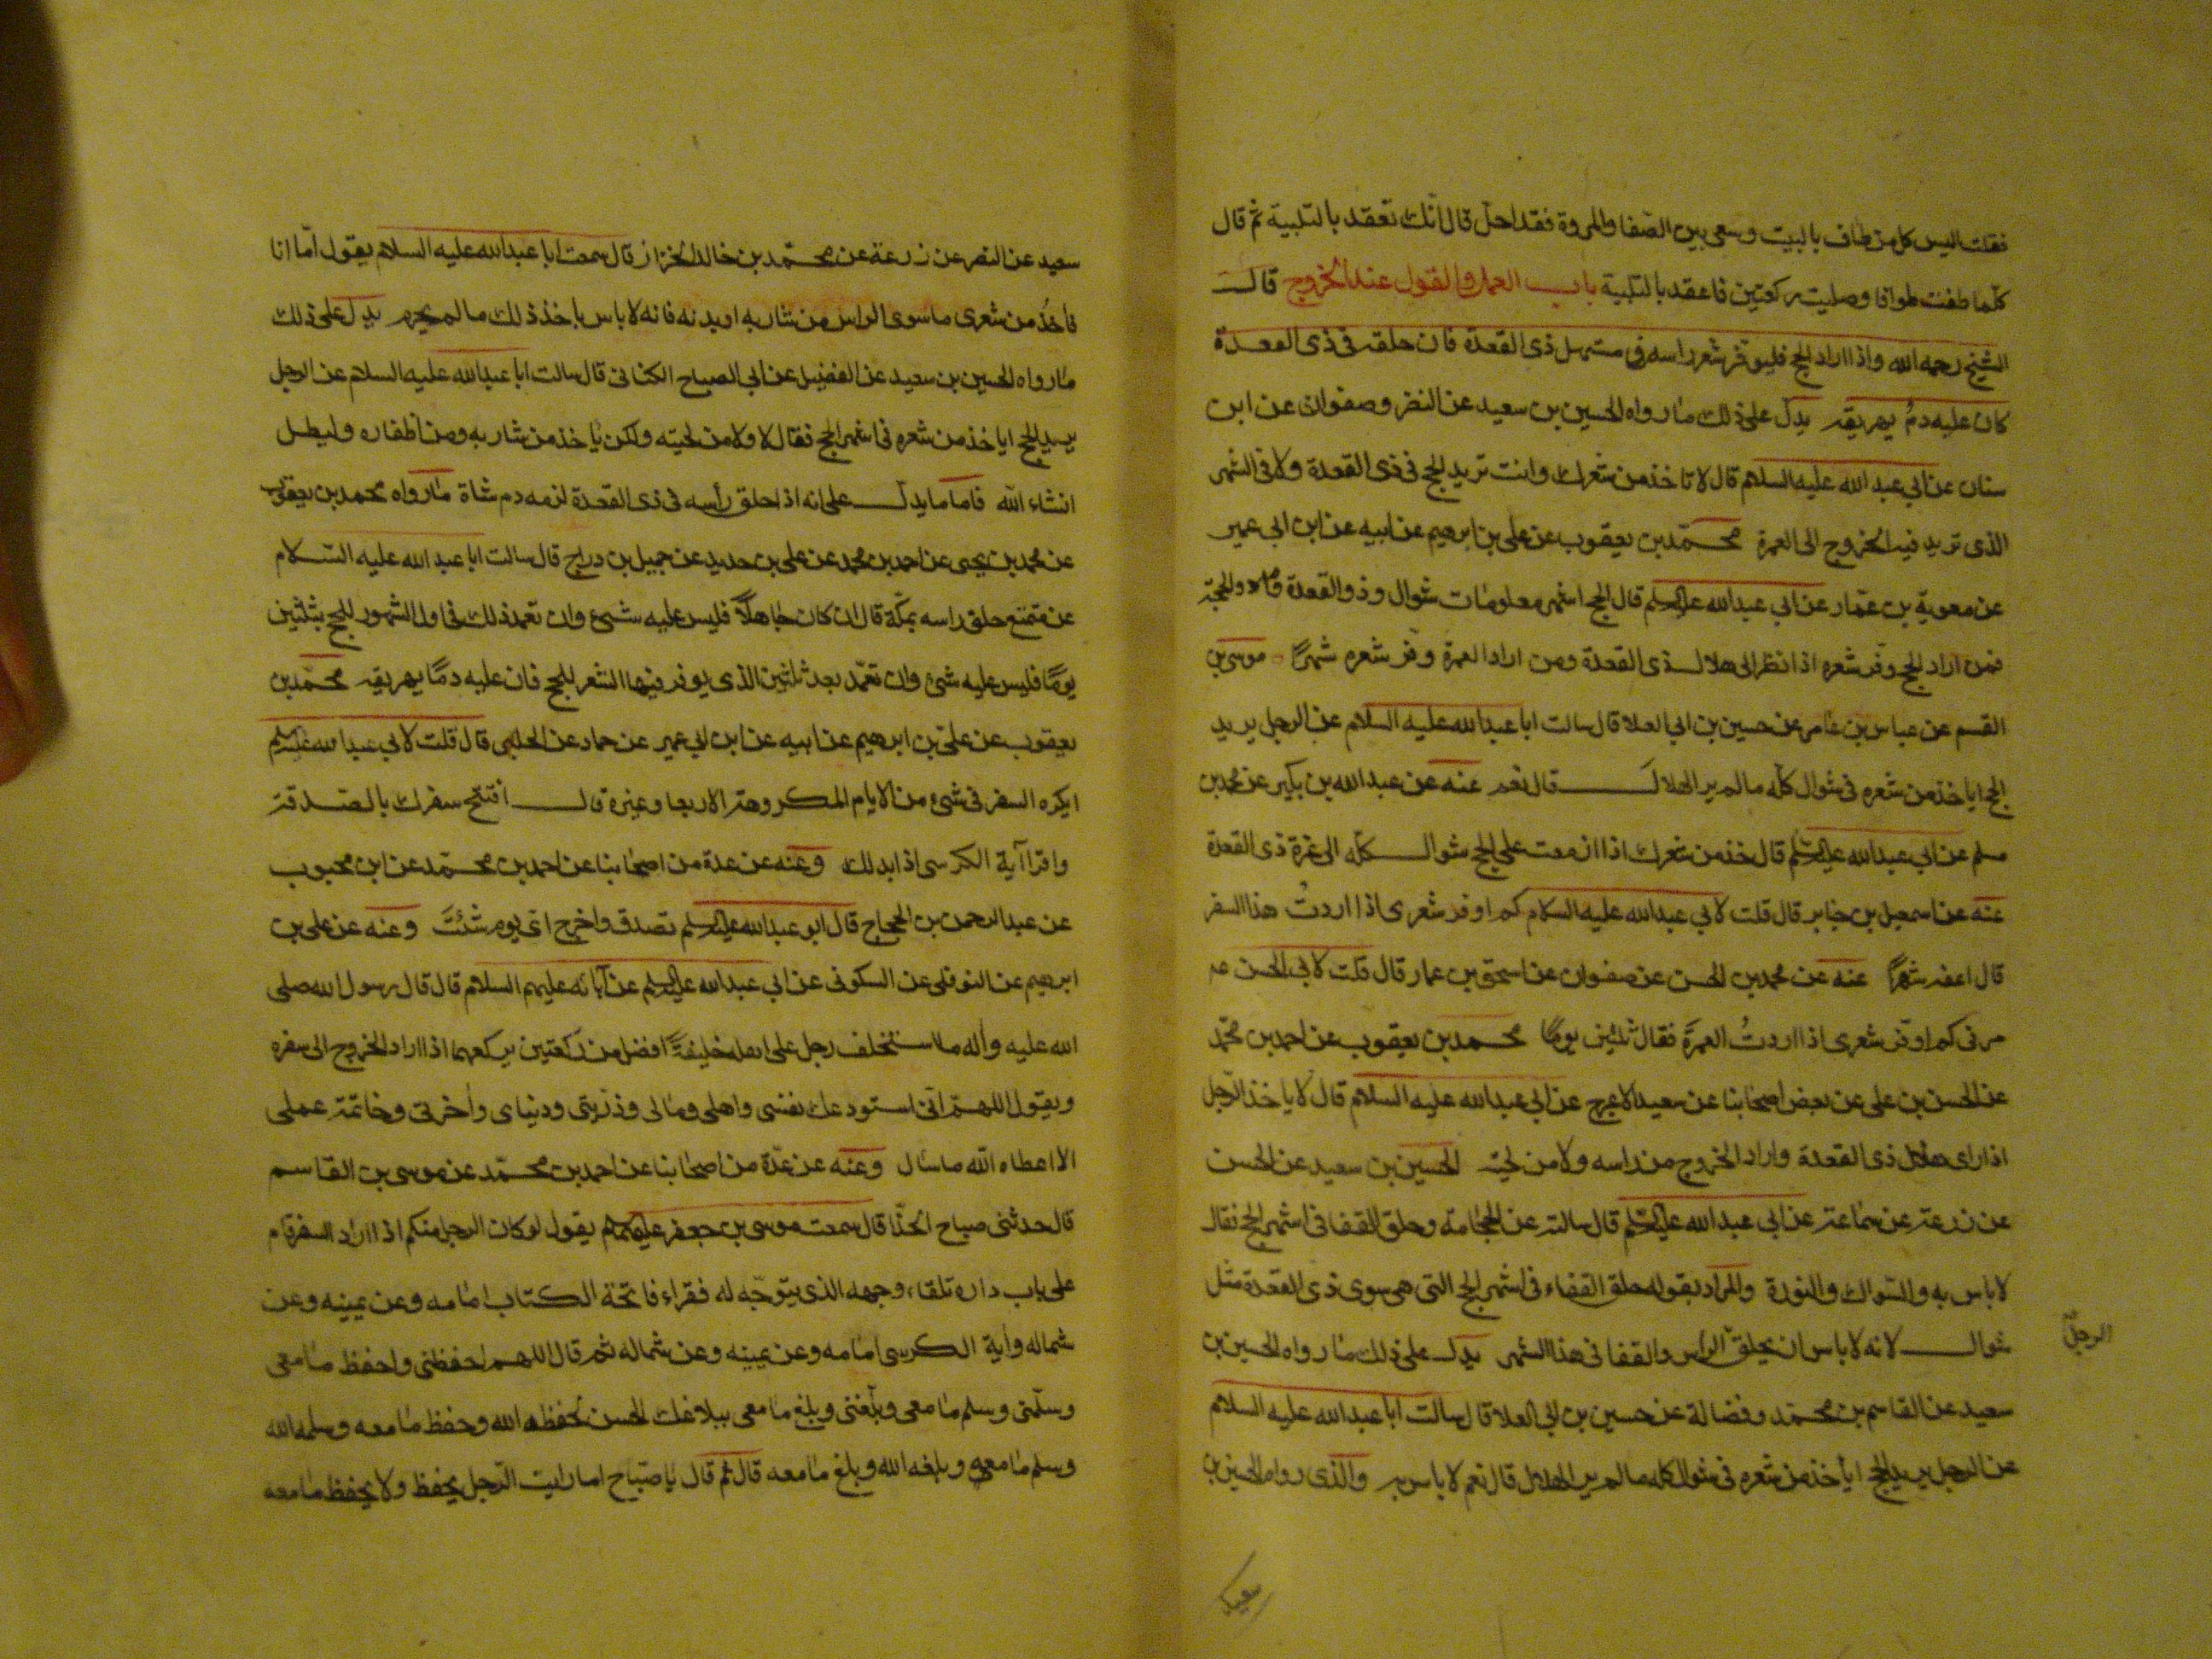 فقلت اليس كل من طاف بالبيت وسعى بين الصّفا والمروة فقد احلّ قال انّك تعقد بالتلبية ثم قال
كلّما طفت طوافا وصليت ركعتين فاعقد بالتلبية باب العمل والقول عند الخروج قال
الشيخ رحمه الله واذا اراد الحج فليوفّر شعر راسه فى مستهل ذى القعدة فان حلقه فى ذى القعدة
كان عليه دمٌ يهريقه يدلّ على ذلك ما رواه الحسين بن سعيد عن النضر وصفوان عن ابن
سنان عن ابي عبد الله عليه السلام قال لا تاخذ من شعرك وانت تريد الحج فى ذى القعدة ولا فى الشهر
الذى تريد فيه الخروج الى العمرة محمّد بن يعقوب عن على بن ابرهيم عن ابيه عن ابن ابى عمير
عن معوية بن عمّار عن ابي عبد الله عليه السلم قال الحج اشهر معلومات شوال وذو القعدة وذو الحجة
فمن اراد الحج وفّر شعره اذا نظر الى هلال ذى القعدة ومن اراد العمرة وفّر شعره شهرًا موسى بن
القسم عن عباس بن عامر عن حسين بن ابي العلا قال سالت ابا عبد الله عليه السلام عن الرجل يريد
الحج اياخذ من شعره فى شوال كلّه ما لم ير الهلال قال نعم عنه عن عبد الله بن بكير عن محمد بن
مسلم عن ابي عبد الله عليه السلم قال خذ من شعرك اذا ازمعت على الحج شوال كلّه الى غرة ذى القعدة
عنه عن اسمعيل بن جابر قال قلت لابي عبد الله عليه السلام كم اوفر شعرى اذا اردتُ هذا السفر
قال اعفه شهرًا عنه عن محمد بن الحسن عن صفوان عن اسحق بن عمار قال قلت لابي الحسن عم
مرنى كم اوفّر شعرى اذا اردتُ العمرة فقال ثلثين يومًا محمد بن يعقوب عن احمد بن محمّد
عن الحسن بن على عن بعض اصحابنا عن سعيد الاعرج عن ابي عبد الله عليه السلام قال لا ياخذ الرّجل
اذا راى هلال ذى القعدة واراد الخروج من راسه ولا من لحيته الحسين بن سعيد عن الحسن
عن زرعة عن سماعة عن ابى عبد الله عليه السلم قال سالته عن الحجامة وحلق القفا فى اشهر الحج فقال
لا باس به والسّواك والنورة والمراد بقوله حلق القفاء فى اشهر الحج التى هى سوى ذى القعدة مثل
شوال لانه لا باس ان يحلق الراس والقفا فى هذا الشهر يدل على ذلك ما رواه الحسين بن
الرجلُ
سعيد عن القاسم بن محمّد وفضالة عن حسين بن ابى العلا قال سالت ابا عبد الله عليه السلام
عن الرجل يريد الحج ايأخذ من شعره فى شوال كله ما لم ير الهلال قال نعم لا باس به والذى رواه الحسين بن
سعيد
سعيد عن النضر عن زرعة عن محمّد بن خالد الخزاز قال سمعت ابا عبد الله عليه السلام يقول امّا انا
فاخذُ من شعرى ما سوى الراس من شاربه او بدنه فانه لا باس باخذ ذلك ما لم يحرم يدل على ذلك
ما رواه الحسين بن سعيد عن الفضيل عن ابى الصباح الكنانى قال سالت ابا عبد الله عليه السلام عن الرجل
يريد الحج اياخذ من شعره فى اشهر الحج فقال لا ولا من لحيته ولكن ياخذ من شاربه ومن اظفاره وليطل
انشاء الله فاما ما يدل على انه اذا حلق رأسه فى ذى القعدة لزمه دم شاة ما رواه محمد بن يعقوب
عن محمد بن يحيى عن احمد بن محمد عن على بن حديد عن جميل بن دراج قال سالت ابا عبد الله عليه السّلام
عن متمتع حلق راسه بمكّة قال ان كان جاهلاً فليس عليه شىء وان تعمد ذلك فى اول الشهور للحج بثلثين
يومًا فليس عليه شىء وان تعمّد بعد ثلثين الذى يوفر فيها الشعر للحج فان عليه دمًا يهريقه محمّد بن
يعقوب عن على بن ابرهيم عن ابيه عن ابن ابي عمير عن حماد عن الحلبى قال قلت لابي عبد الله عليه السلم
ايكره السفر فى شىء من الايام المكروهة الاربعا وغيره قال افتتح سفرك بالصّدقة
واقرا آية الكرسى اذا بدا لك وعنه عن عدة من اصحابنا عن احمد بن محمّد عن ابن محبوب
عن عبد الرحمن بن الحجاج قال ابو عبد الله عليه السلم تصدق واخرج اى يوم شئتَ وعنه عن على بن
ابرهيم عن النوفلى عن السكونى عن ابى عبد الله عليه السلم عن آبائه عليهم السلام قال قال رسول الله صلى
الله عليه وآله ما استخلف رجل على اهله خليفةً افضل من ركعتين يركعهما اذا اراد الخروج الى سفره
ويقول اللهمّ انّى استودعك نفسى واهلى ومالى وذرّيتى ودنياى وآخرتى وخاتمة عملى
الا اعطاه الله ما سال وعنه عن عدّة من اصحابنا عن احمد بن محمّد عن موسى بن القاسم
قال حدثنى صباح الحذّا قال سمعت موسى بن جعفر يقول لو كان الرجل منكم اذا اراد السفر قام
على باب داره تلقاء وجهه الذى يتوجّه له فقراء فاتحة الكتاب امامه وعن يمينه وعن
شماله وآية الكرسى امامه وعن يمينه وعن شماله ثم قال اللهم احفظنى واحفظ ما معى
وسلّمنى وسلم ما معى وبلّغنى وبلغ ما معى ببلاغك الحسن لحفظه الله وحفظ ما معه وسلمه الله
وسلم ما معه وبلغه الله وبلغ ما معه قال ثم قال يا صبّاح اما رايت الرّجل يحفظ ولا يحفظ ما معه